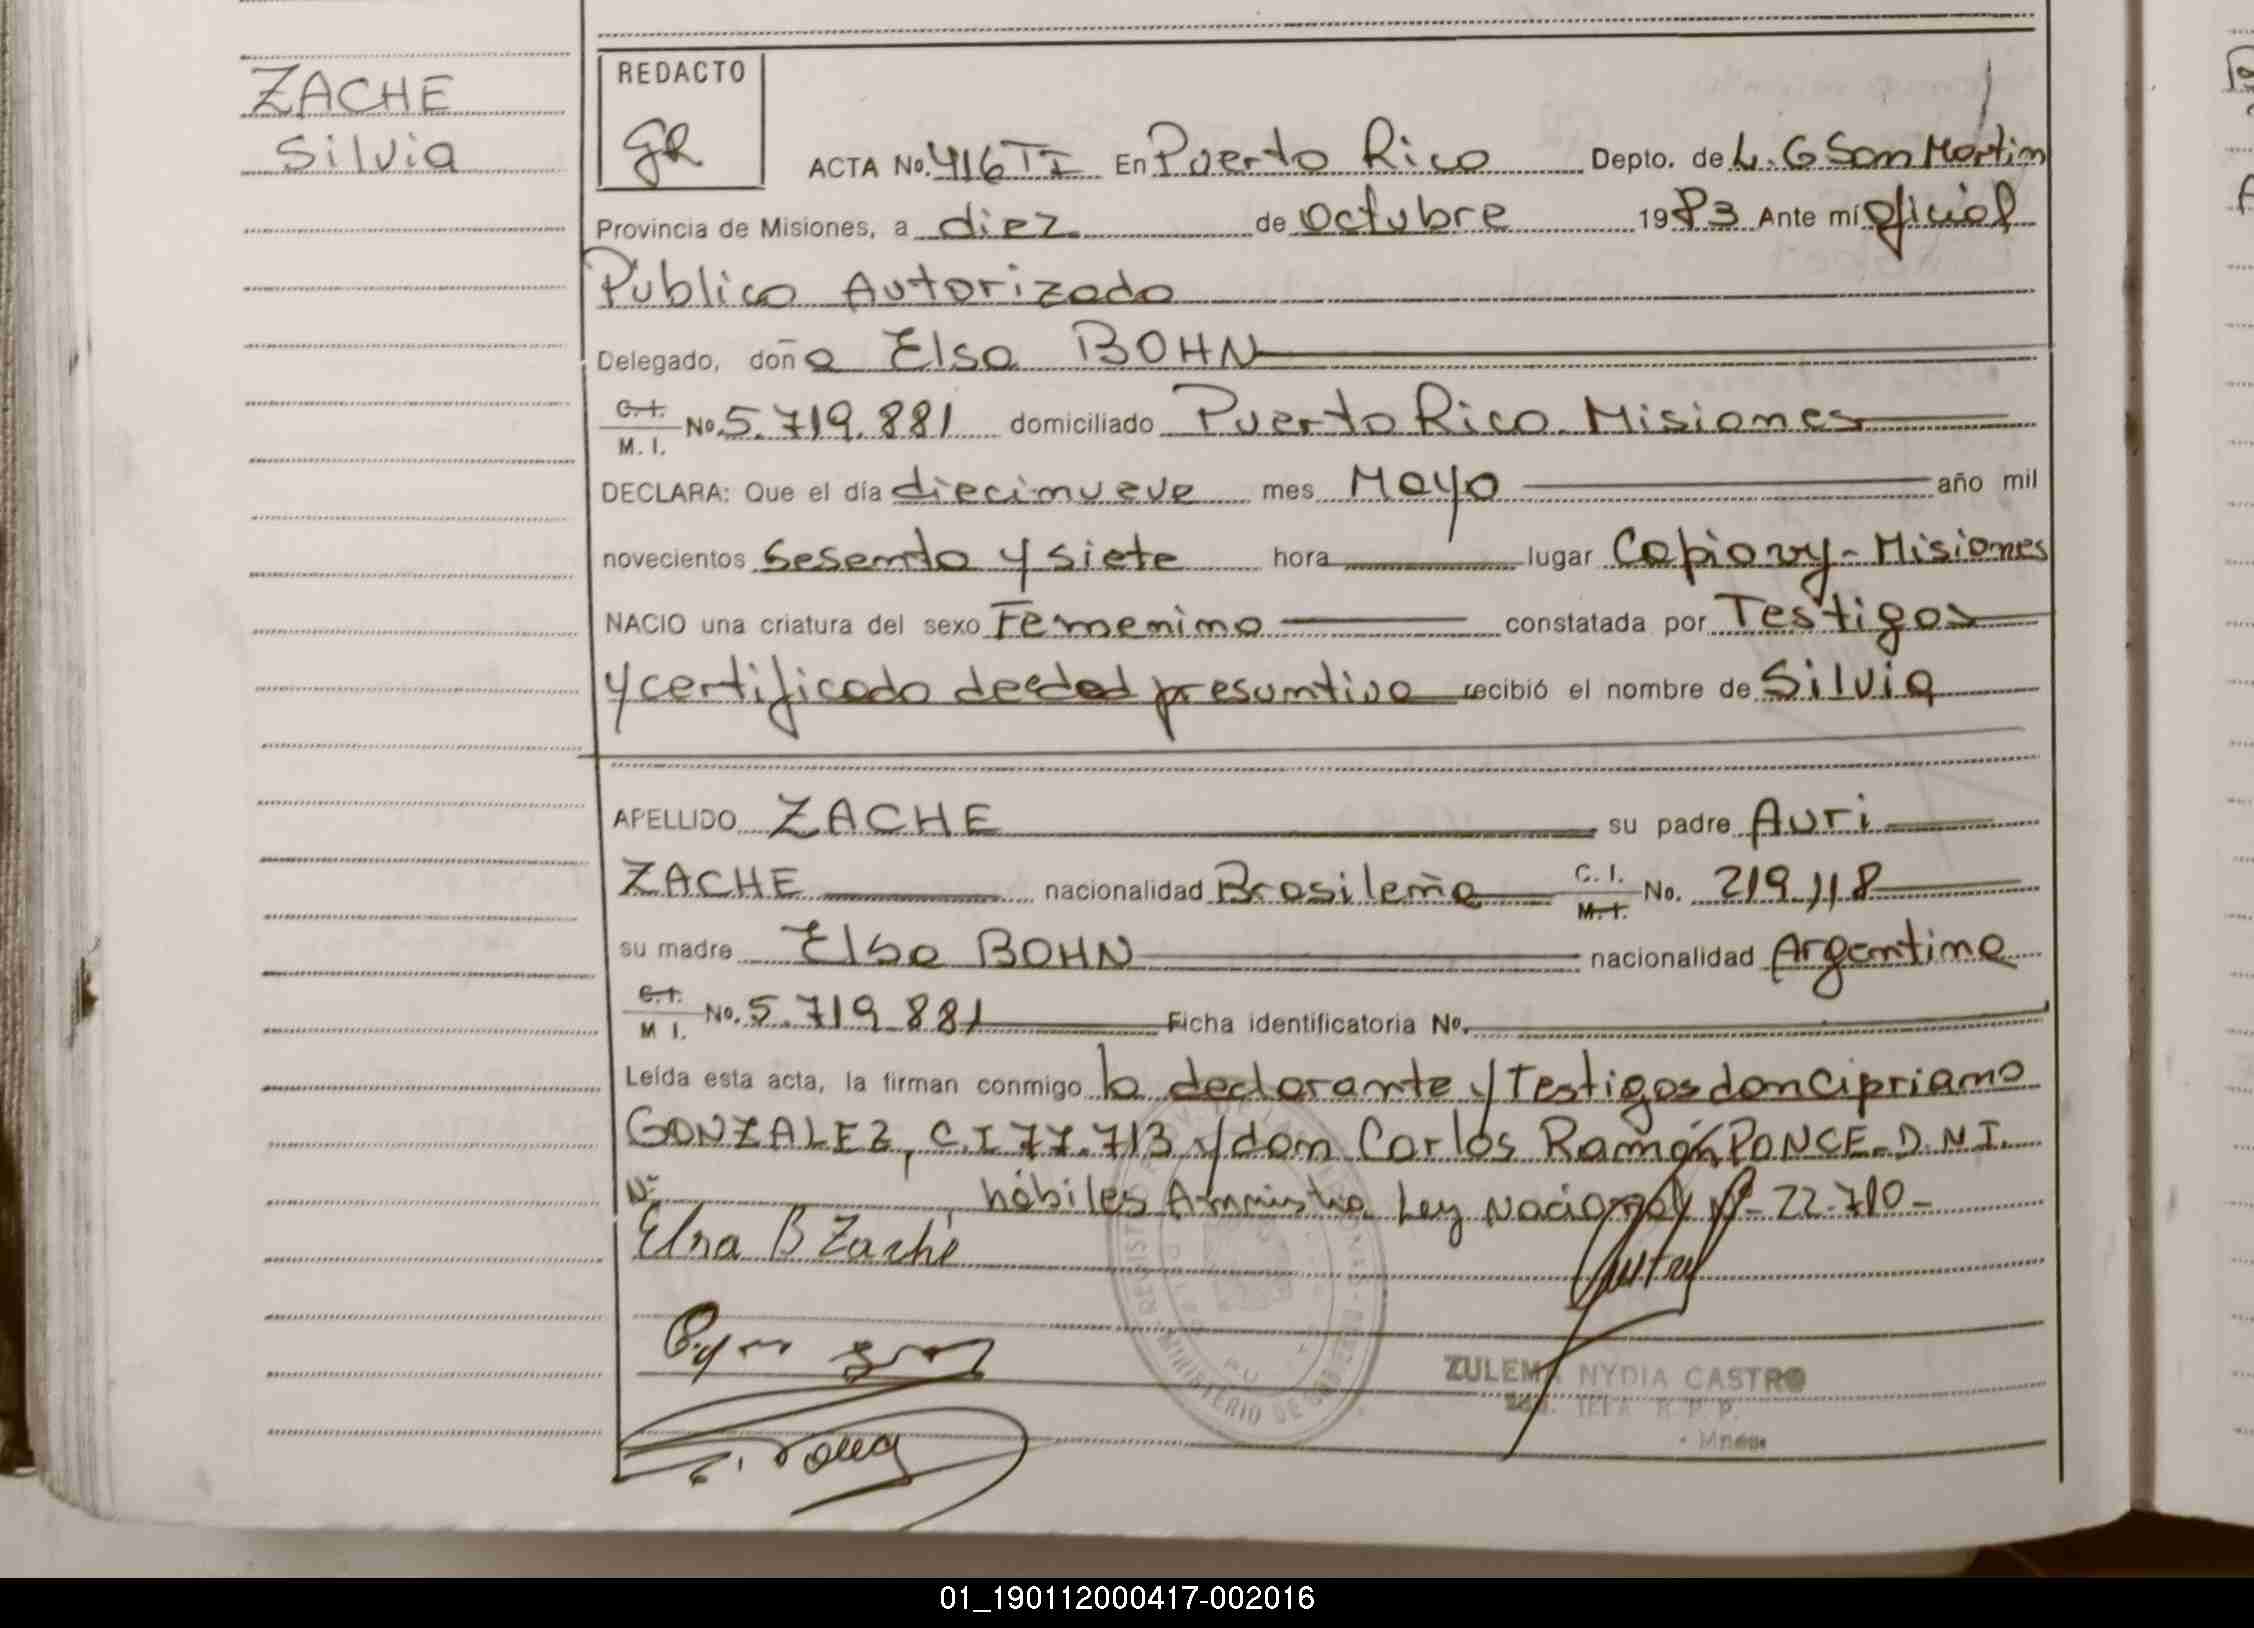 ZACHE
Silvia
REDACTO
gR
ACTA No. 416 TI En Puerto Rico Depto. de L. G San Martin
Provincia de Misiones, a diez de Octubre 1983 Ante mí Oficial
Público Autorizado
Delegado, doña Elsa BOHN
C. I.
M. I.
No. 5.719.881 domiciliado Puerto Rico Misiones
DECLARA: Que el día diecinueve mes Mayo año mil
novecientos Sesenta y siete hora lugar Capiovy - Misiones
NACIO una criatura del sexo Femenino constatada por Testigos
y certificado de edad presuntiva recibió el nombre de Silvia
APELLIDO ZACHE su padre Auri
ZACHE nacionalidad Brasileña C. I. M. I. No. 219.118
su madre Elsa BOHN nacionalidad Argentina
C. I.
M I.
No. 5.719 881 Ficha identificatoria No.
Leída esta acta, la firman conmigo la declarante y Testigos don Cipriano
GONZALEZ, C.I 77.713 y don Carlos Ramón PONCE - D.N.I.
Nº , hábiles Amnistia Ley Nacional Nº - 22.710 -
Elsa B Zaché
ZULEMA NYDIA CASTRO
MINISTERIO DE
Mnes
01_190112000417-002016